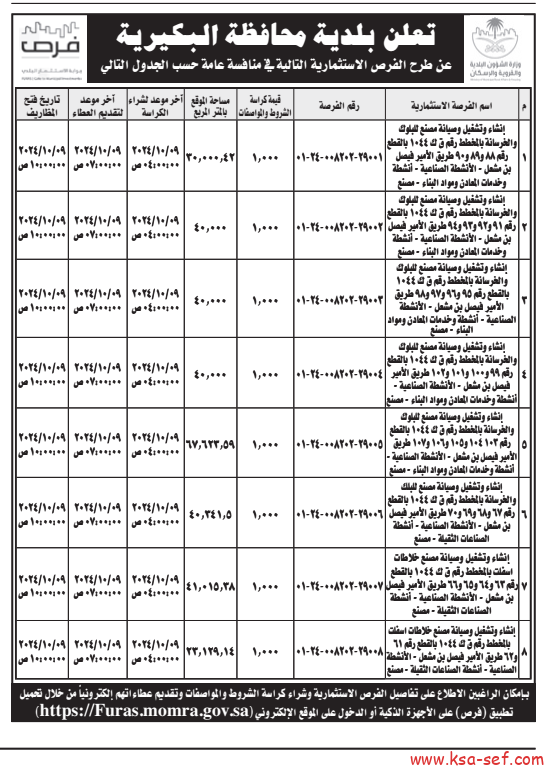 تعلن بلدية محافظة البكيرية
عن طرح الفرص الاستثمارية التالية في منافسة عامة حسب الجدول التالي
وزارة الشؤون البلدية
والقروية والإسكان
فرص
بوابة الاستثمار البلدي
م
اسم الفرصة الاستثمارية
رقم الفرصة
قيمة كراسة
الشروط والمواصفات
مساحة الموقع
بالمتر المربع
آخر موعد لشراء
الكراسة
آخر موعد
لتقديم العطاء
تاريخ فتح
المظاريف
١
إنشاء وتشغيل وصيانة مصنع للبلوك
والخرسانة بالمخطط رقم ق ك ١٠٤٤ بالقطع
رقم ٨٨ و٨٩ و٩٠ طريق الأمير فيصل
بن مشعل - الأنشطة الصناعية - أنشطة
وخدمات المعادن ومواد البناء - مصنع
٠١-٢٤-٠٠٨٢٠٢-٢٩٠٠١
١,٠٠٠
٣٠,٠٠٠,٤٢
٢٠٢٤/١٠/٠٩
٠٤:٠٠:٠٠ ص
٢٠٢٤/١٠/٠٩
٠٧:٠٠:٠٠ ص
٢٠٢٤/١٠/٠٩
١٠:٠٠:٠٠ ص
٢
إنشاء وتشغيل وصيانة مصنع للبلوك
والخرسانة بالمخطط رقم ق ك ١٠٤٤ بالقطع
رقم ٩١ و٩٢ و٩٣ و٩٤ طريق الأمير فيصل
بن مشعل - الأنشطة الصناعية - أنشطة
وخدمات المعادن ومواد البناء - مصنع
٠١-٢٤-٠٠٨٢٠٢-٢٩٠٠٢
١,٠٠٠
٤٠,٠٠٠
٢٠٢٤/١٠/٠٩
٠٤:٠٠:٠٠ ص
٢٠٢٤/١٠/٠٩
٠٧:٠٠:٠٠ ص
٢٠٢٤/١٠/٠٩
١٠:٠٠:٠٠ ص
٣
إنشاء وتشغيل وصيانة مصنع للبلوك
والخرسانة بالمخطط رقم ق ك ١٠٤٤
بالقطع رقم ٩٥ و٩٦ و٩٧ و٩٨ طريق
الأمير فيصل بن مشعل - الأنشطة
الصناعية - أنشطة وخدمات المعادن ومواد
البناء - مصنع
٠١-٢٤-٠٠٨٢٠٢-٢٩٠٠٣
١,٠٠٠
٤٠,٠٠٠
٢٠٢٤/١٠/٠٩
٠٤:٠٠:٠٠ ص
٢٠٢٤/١٠/٠٩
٠٧:٠٠:٠٠ ص
٢٠٢٤/١٠/٠٩
١٠:٠٠:٠٠ ص
٤
إنشاء وتشغيل وصيانة مصنع للبلوك
والخرسانة بالمخطط رقم ق ك ١٠٤٤ بالقطع
رقم ٩٩ و١٠٠ و١٠١ و١٠٢ طريق الأمير
فيصل بن مشعل - الأنشطة الصناعية -
أنشطة وخدمات المعادن ومواد البناء - مصنع
٠١-٢٤-٠٠٨٢٠٢-٢٩٠٠٤
١,٠٠٠
٤٠,٠٠٠
٢٠٢٤/١٠/٠٩
٠٤:٠٠:٠٠ ص
٢٠٢٤/١٠/٠٩
٠٧:٠٠:٠٠ ص
٢٠٢٤/١٠/٠٩
١٠:٠٠:٠٠ ص
٥
إنشاء وتشغيل وصيانة مصنع للبلوك
والخرسانة بالمخطط رقم ق ك ١٠٤٤ بالقطع
رقم ١٠٣ ١٠٤ و١٠٥ و١٠٦ و١٠٧ طريق
الأمير فيصل بن مشعل - الأنشطة الصناعية -
أنشطة وخدمات المعادن ومواد البناء - مصنع
٠١-٢٤-٠٠٨٢٠٢-٢٩٠٠٥
١,٠٠٠
٦٧,٦٢٣,٥٩
٢٠٢٤/١٠/٠٩
٠٤:٠٠:٠٠ ص
٢٠٢٤/١٠/٠٩
٠٧:٠٠:٠٠ ص
٢٠٢٤/١٠/٠٩
١٠:٠٠:٠٠ ص
٦
إنشاء وتشغيل وصيانة مصنع للبلك
والخرسانة بالمخطط رقم ق ك ١٠٤٤ بالقطع
رقم ٦٧ و٦٨ و٦٩ و٧٠ طريق الأمير فيصل
بن مشعل - الأنشطة الصناعية - أنشطة
الصناعات الثقيلة - مصنع
٠١-٢٤-٠٠٨٢٠٢-٢٩٠٠٦
١,٠٠٠
٤٠,٣٤١,٥
٢٠٢٤/١٠/٠٩
٠٤:٠٠:٠٠ ص
٢٠٢٤/١٠/٠٩
٠٧:٠٠:٠٠ ص
٢٠٢٤/١٠/٠٩
١٠:٠٠:٠٠ ص
٧
إنشاء وتشغيل وصيانة مصنع خلاطات
اسفلت بالمخطط رقم ق ك ١٠٤٤ بالقطع
رقم ٦٣ و٦٤ و٦٥ و٦٦ طريق الأمير فيصل
بن مشعل - الأنشطة الصناعية - أنشطة
الصناعات الثقيلة - مصنع
٠١-٢٤-٠٠٨٢٠٢-٢٩٠٠٧
١,٠٠٠
٤١,٠١٥,٣٨
٢٠٢٤/١٠/٠٩
٠٤:٠٠:٠٠ ص
٢٠٢٤/١٠/٠٩
٠٧:٠٠:٠٠ ص
٢٠٢٤/١٠/٠٩
١٠:٠٠:٠٠ ص
٨
إنشاء وتشغيل وصيانة مصنع خلاطات اسفلت
بالمخطط رقم ق ك ١٠٤٤ بالقطع رقم ٦١
و٦٢ طريق الأمير فيصل بن مشعل - الأنشطة
الصناعية - أنشطة الصناعات الثقيلة - مصنع
٠١-٢٤-٠٠٨٢٠٢-٢٩٠٠٨
١,٠٠٠
٢٣,١٢٩,١٤
٢٠٢٤/١٠/٠٩
٠٤:٠٠:٠٠ ص
٢٠٢٤/١٠/٠٩
٠٧:٠٠:٠٠ ص
٢٠٢٤/١٠/٠٩
١٠:٠٠:٠٠ ص
بإمكان الراغبين الاطلاع على تفاصيل الفرص الاستثمارية وشراء كراسة الشروط والمواصفات وتقديم عطاءاتهم إلكترونياً من خلال تحميل
تطبيق (فرص) على الأجهزة الذكية أو الدخول على الموقع الإلكتروني (https://Furas.momra.gov.sa)
www.ksa-sef.com